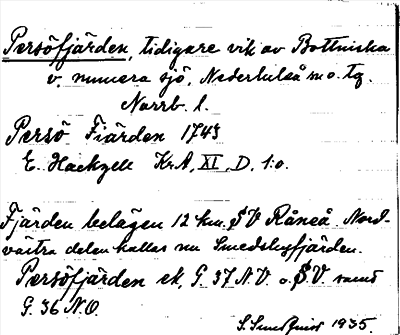 Persöfjärden, tidigare vik av Bottniska
v. numera sjö, Nederluleå sn o. tg.
Norrb. l.
Persö Fiärden 1743
E. Hackzell Kr.A, XI, D, 1:o.
Fjärden belägen 12 km. SV Råneå. Nord-
västra delen kallas nu Smedsbyfjärden.
Persöfjärden ek. G. 37 N.V. o. S.V. samt
G. 36 N.O.
S. Sundqvist 1935.